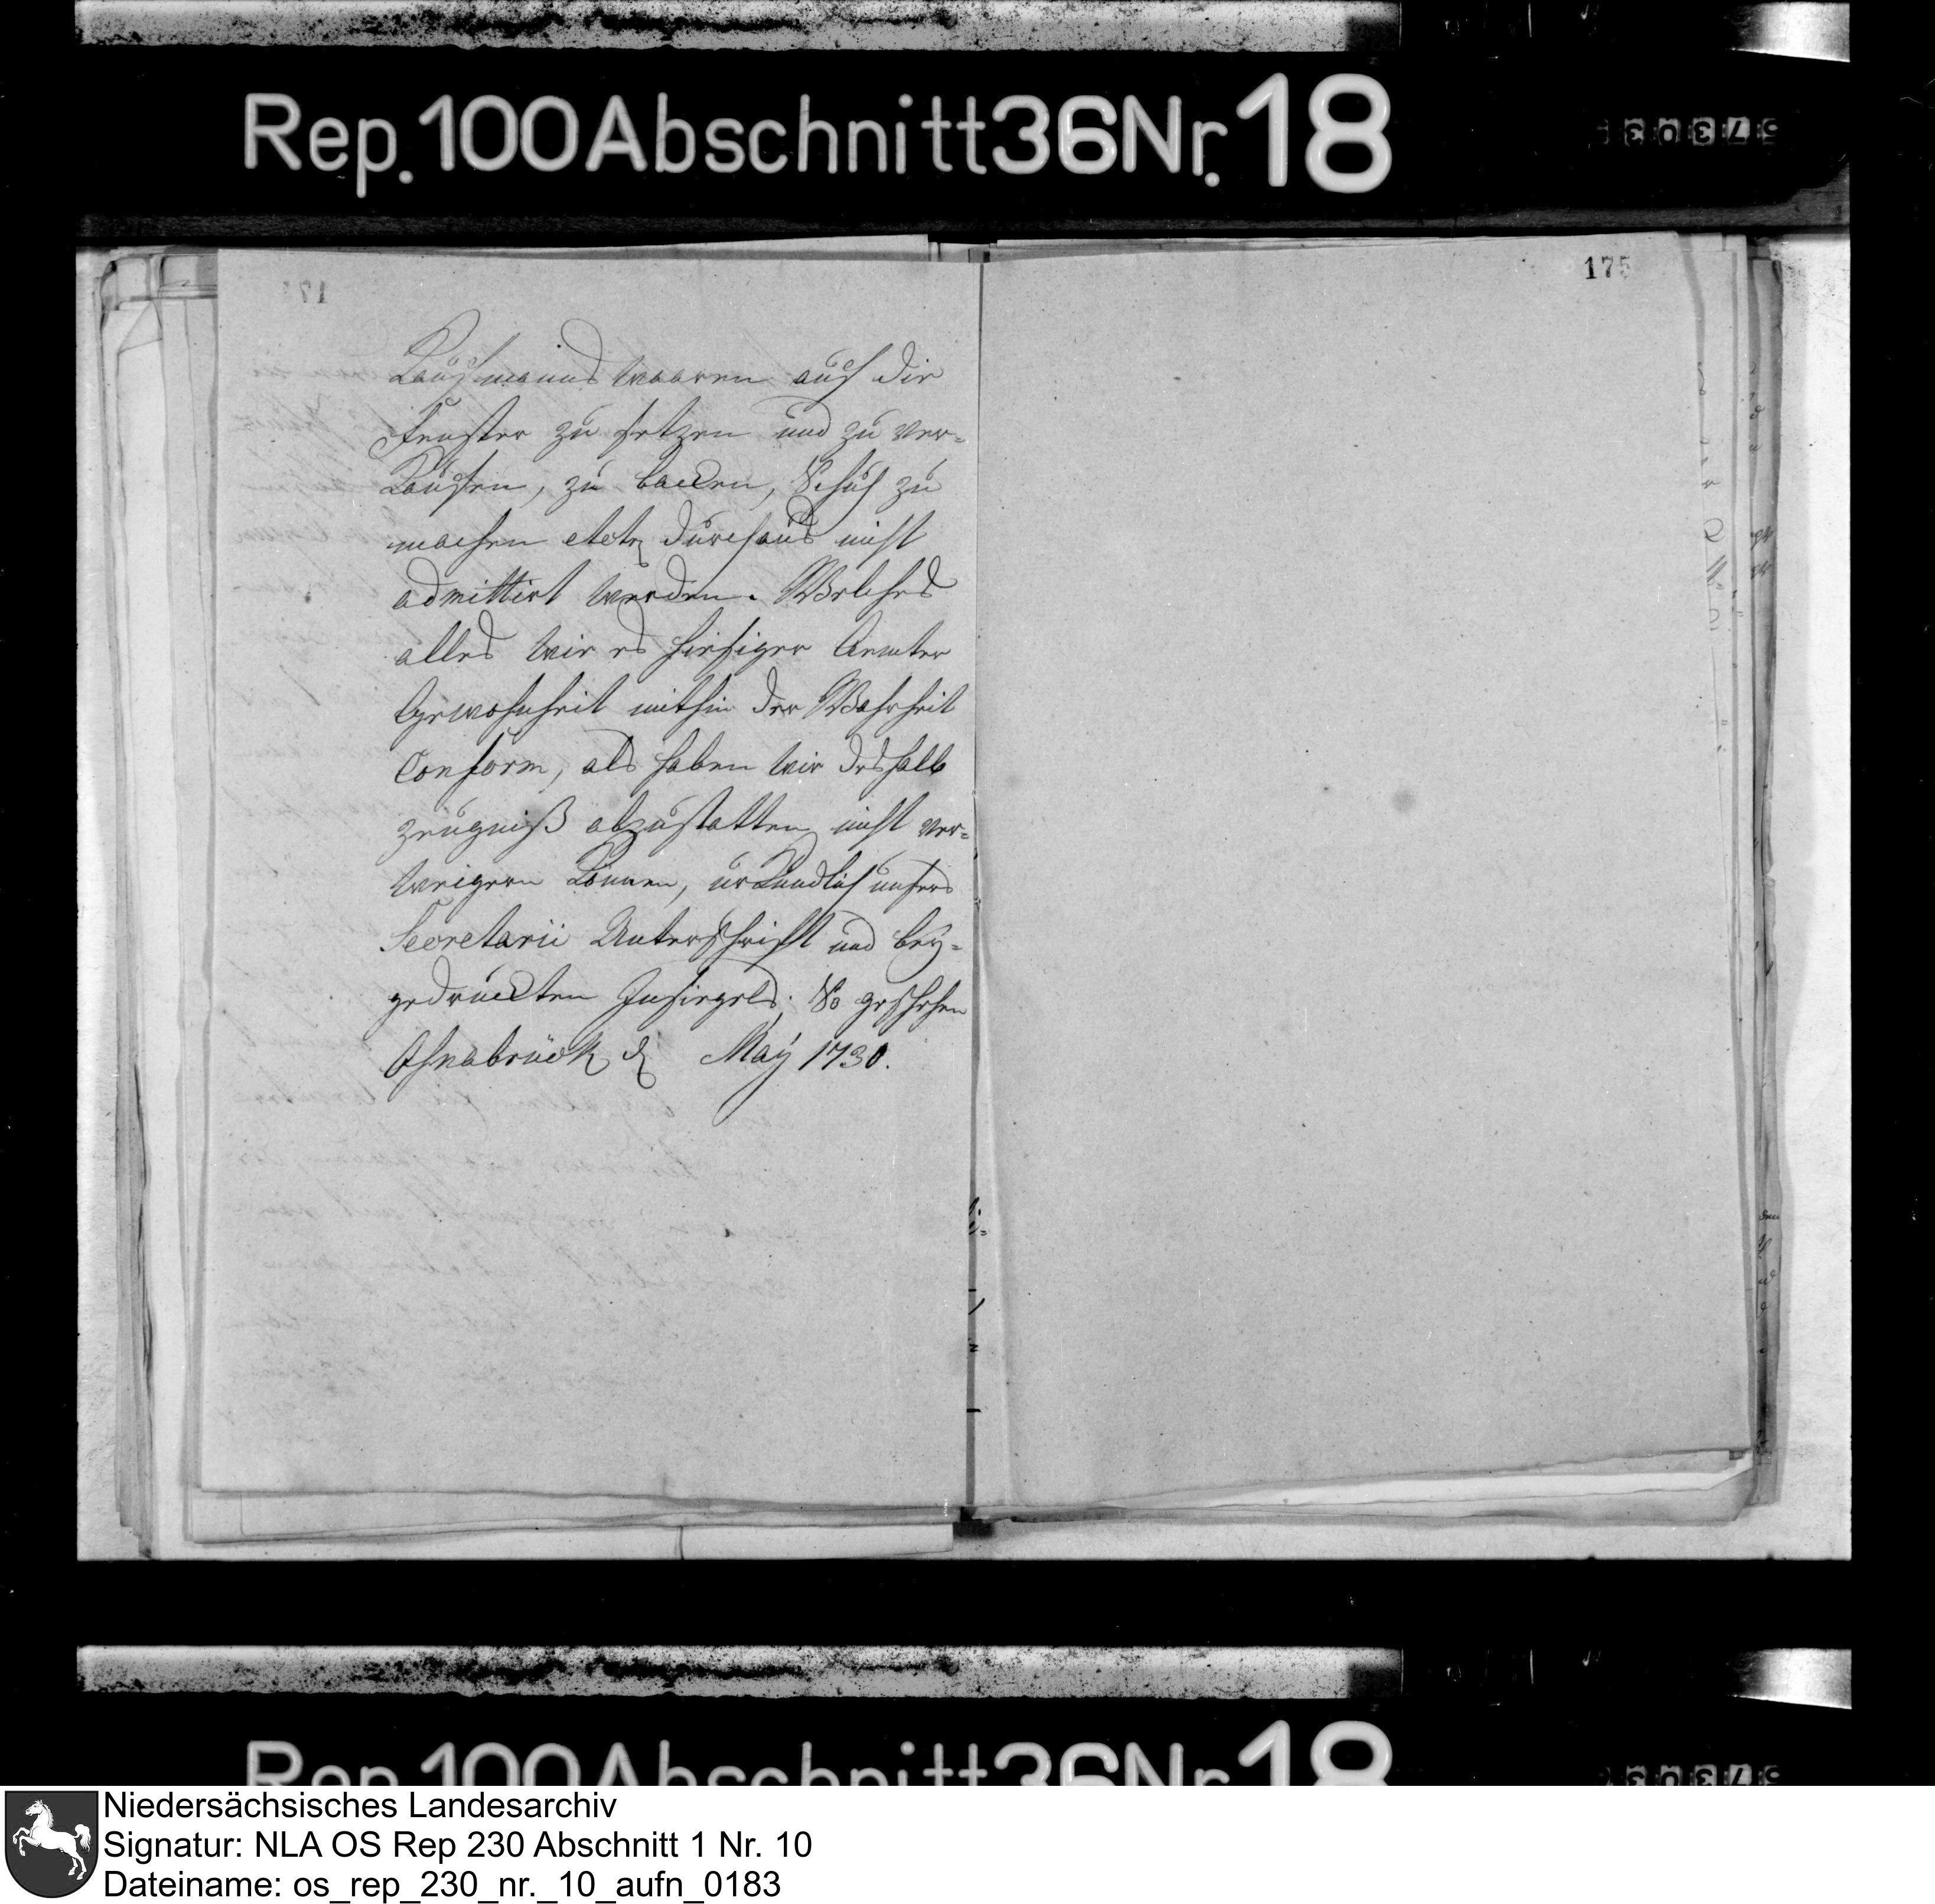 Rep. 100 Abschnitt 36 Nr. 18
175
Kaufmanns waaren auf die
Fenster zu setzen und zu ver-
kaufen, zu backen, Schuh zu
machen etctr durchaus nicht
admittirt werden. Welches
alles wie es hiesiger Aemter
Gewohnheit mithin der Wahrheit
conform, als haben wir deshalb
zeugniß abzustatten nicht ver-
weigern können, urkundlich unsers
Secretarii Unterschrift und bey-
gedruckten Insiegels. So geschehen
Oßnabrück d May 1730.
Rep. 100 Abschnitt 36 Nr. 18
Niedersächsisches Landesarchiv
Signatur: NLA OS Rep 230 Abschnitt 1 Nr. 10
Dateiname: os_rep_230_nr._10_aufn_0183